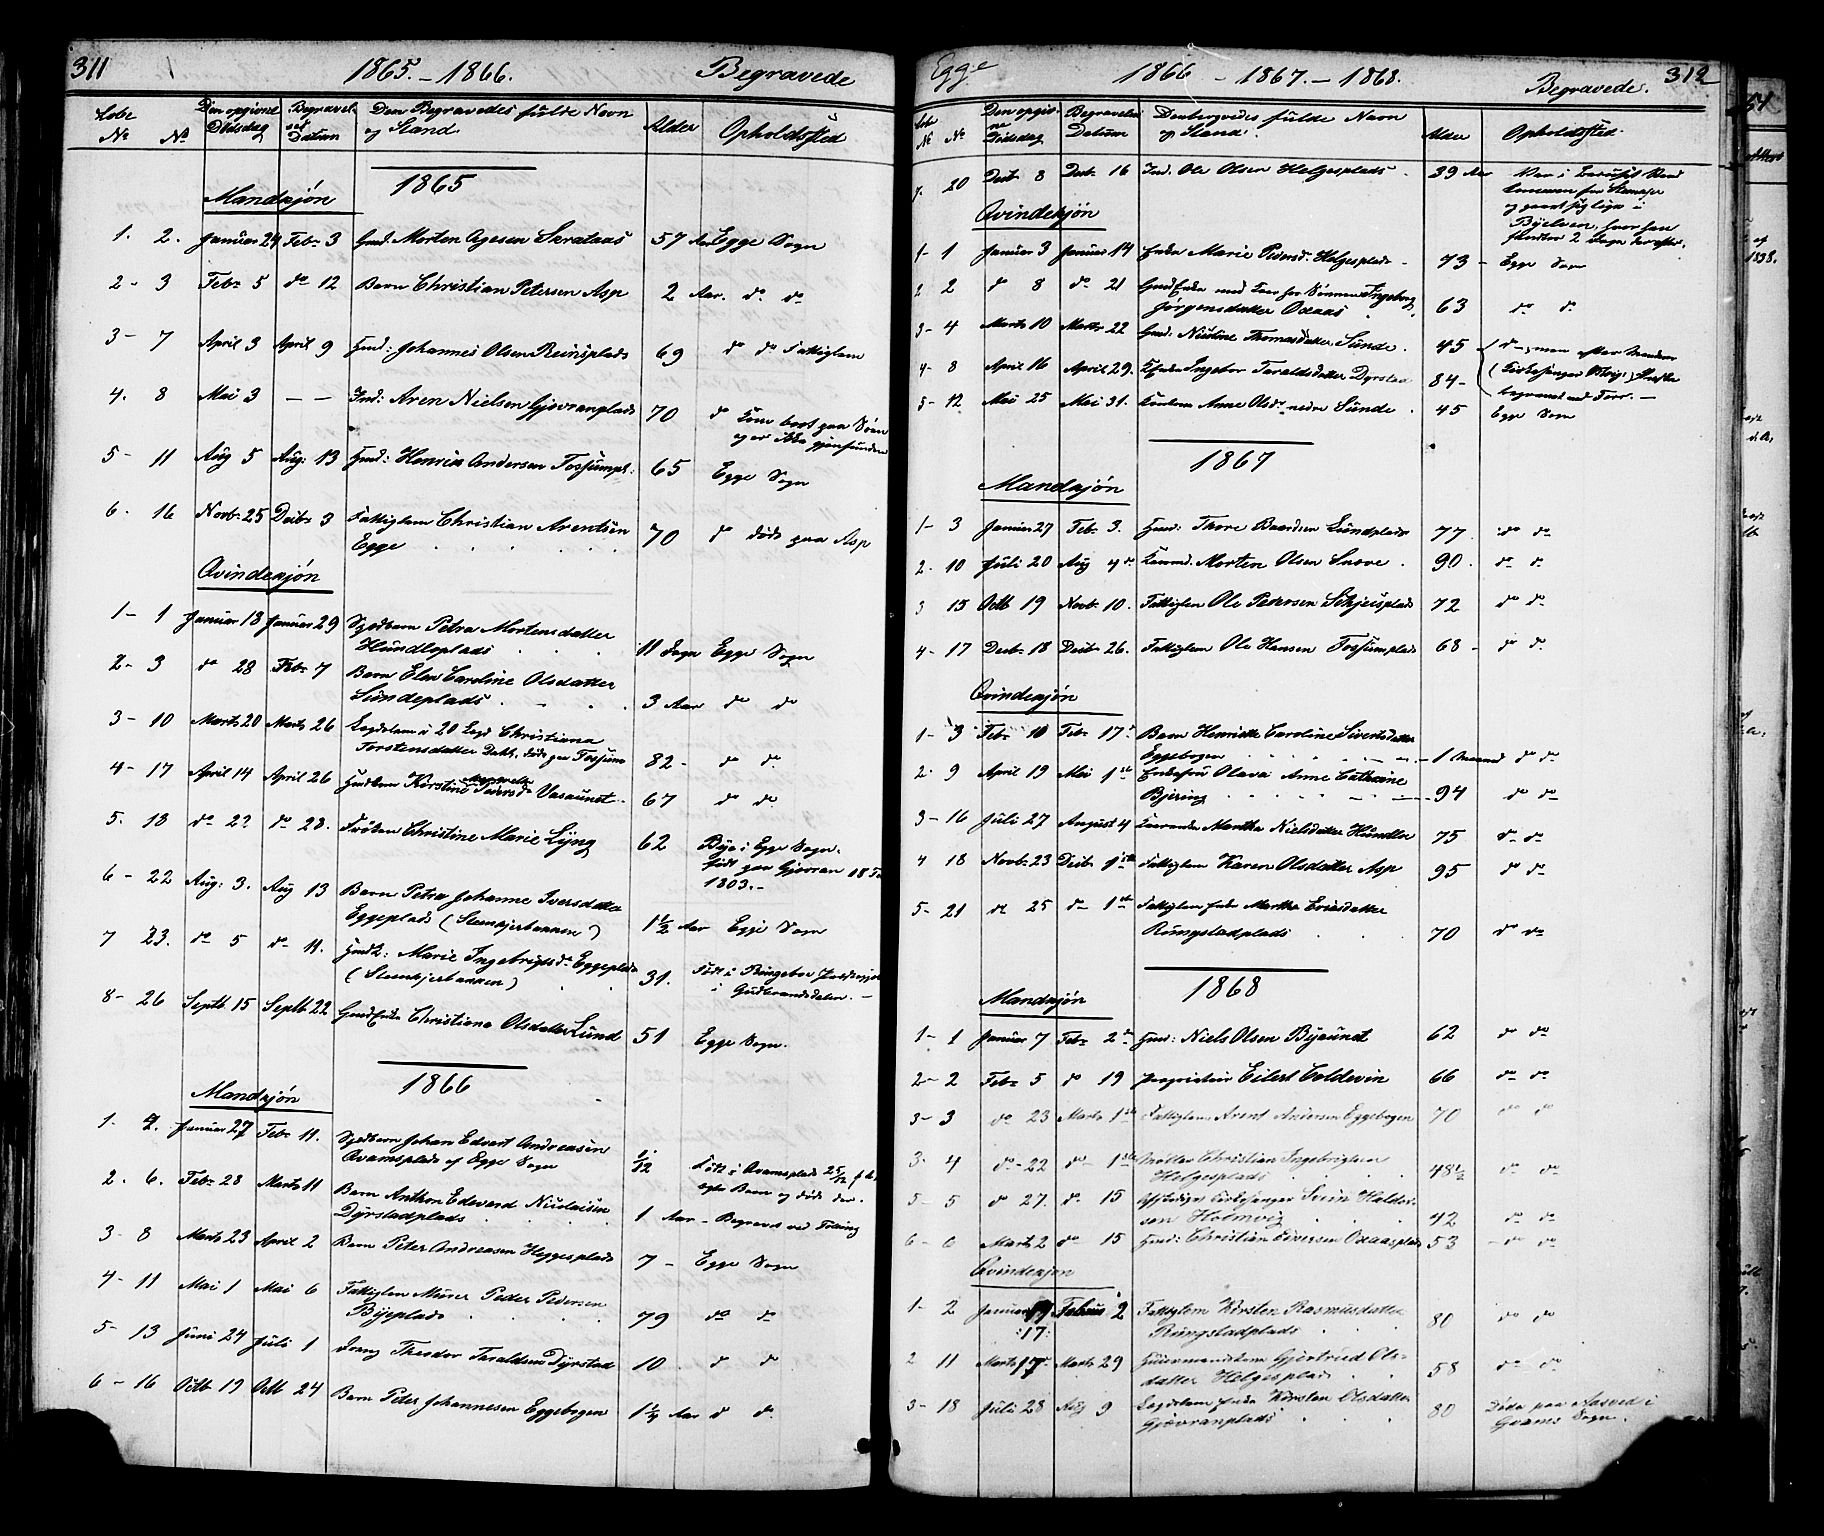 311 1865.-1866. Begravede
Løbe No No Den opgivne Dødsdag Begravelses Datum Den Begravedes fulde Navn og Stand Alder Opholdsted
1865
Mandkjøn
1. 2. Januar 24 Febr. 3 Gmd: Morten Agesen Skrataas 57 Aar Egge Sogn
2- 3 Febr 5 do 12 Barn Christian Petersen Asp 2 Aar. do. do
3- 7 April 3 April 9 Gmd: Johannes Olsen Reinsplads 69 do do Fattiglem
4. 8 Mai 3 - - Ind: Aren Nielsen Gjøvranplads 70 do
Kom bort paa Søen
og er ikke gjenfunden
5- 11 Aug 5 Aug: 13 Gmd: Henrik Andersen Fossumpl: 65 Egge Sogn
6. 16 Novb. 25 Decbr 3 Fattiglem Christian Arentsen
Egge 70 do døde paa Asp
Qvindekjøn
1- 1 Januar 18 Januar 29 Spædbarn Petra Mortensdatter
Hundloplads 11 Dage Egge Sogn
2- 3 do 28 Febr 7 Barn Elen Caroline Olsdatter
Sundeplads 3 Aar do do
3- 10 Marts 20 Marts 26 Lagdslem i 20 Lagd Christiana
Torstensdatter Dahl, døde paa Fossum 82- do do
4- 17 April 14 April 26 Kirstine Margrete Pedersdr Vasaunet 67 do do
5. 18 do 22 do 28. Frøken Christine Marie Lyng 62 Bye i Egge Sogn.
født paa Gjøvran 18
1803.-
6- 22 Aug: 3. Aug 13 Barn Petra Johanne Iversdatter
Eggeplads (Steenkjerbakken) 1½ Aar Egge Sogn
7 23. do 5 do 11. Marie Ingebrigtsdr Eggeplads
(Steenkjerbakken) 31. Født i Ringeboe Præstegjeld
i Gudbrandsdalen.-
8- 26 Septb 15 Septb 22 Gmd Enke Christiana Olsdatter Lund 51 Egge Sogn.
1866
Mandkjøn
1- 2. Januar 27 Febr 11. Spædbarn Johan Edvart Andreasen
Qvamsplads af Egge Sogn 1/12 Født i Qvamsplads
ægte Barn og døde der.
2. 6. Febr 28 Marts 11 Barn Anthon Edevard Nicolaisen
Dyrstadplads 1 Aar - Begravet ved Følling
3- 8 Marts 23 April 2 Barn Peter Andreasen Heggesplads 7 - Egge Sogn
4- 11 Mai 1 Mai 6 Fattiglem Murer Peder Pedersen
Byeplads 79 do do
5- 13 Juni 24 Juli 1 Dreng Theodor Taraldsen Dyrstad 10 do do
6- 16 Octb 19 Octb 24 Barn Peter Johannesen Eggebogen 1¼ Aar do do
Egge 1866 - 1867. - 1868. Begravede. 312
Løbe No No Den opgivne Dødsdag Begravelses Datum Den begravedes fulde Navn og Stand Alder Opholdsted.
7. 20 Decb 8 Decb. 16 Ind. Ole Olsen Helgesplads 39 Aar
og
i
Byelven, hvor han
2 Dage derefter.
Qvindekjøn
1- 1 Januar 3 Januar 14 Enke Marie Pedersd. Helgesplads 73 - Egge Sogn
2 2 do 8 do 21 Gmd Enke med Kaar hos Sønnen Ingeborg
Jørgensdatter Oxaas 63 do do
3- 4 Marts 10 Marts 22 Gmd. Nicoline Thomasdatter Sunde 45 do
4- 8 April 16 April 29. Enke Ingebor Taraldsdatter Dyrstad 84-
5- 12 Mai 25 Mai 31. Anne Olsdr nedre Sunde 45 Egge Sogn
1867
Mandkjøn
1- 3 Januar 27 Feb. 3. Gmd: Thore Baardsen Lundplads 77 do do
2. 10 Juli 20 Aug 4de Kaarmd. Morten Olsen Snove 90. do do
3 15 Octb 19 Novb. 10. Fattiglem Ole Pedersen Skjeisplads 72 do do
4- 17 Decb 18 Decbr 26. Fattiglem Ole Hansen Fossumplads 68 - do do
Qvindekjøn
1- 3 Febr 10 Febr 17. Barn Henrikke Caroline Sivertsdatter
Eggebogen 1 Maaned do do
2. 9 April 19 Mai 1ste Enkefru Olava Anne Cathrine
Bjering 94 do do
3- 16 Juli 27 August 4 Martha Nielsdatter Hundloe 75 do do
4 18 Novb. 23 Decbr 1ste Fattiglem Karen Olsdatter Asp 95 do do
5- 21 do 25 do 1ste Fattiglem Enke Martha Ericsdatter
Rungstadplads 70 do do
1868
Mandkjøn
1- 1 Januar 7 Febr 2den Gmd: Niels Olsen Byaunet 62 do do
2- 2 Febr 5 do 19 Proprietair Eilert Coldevin 66 do do
3- 3 do 23 Marts 1ste Fattiglem Arent Andersen Eggebogen 70 do do
3. 4 do- 22 do- 1ste Møller Christian Ingebrigtsen
Helgesplads 48½ do do
5- 5 do 27. do 15 Afskediget Kirkesanger Svein Haldorsen
Holmvig 42 do do
6- 6 Marts 2 do 15 Gmd: Christian Siversen Oxaasplads 53 - do do
Qvindekjøn
1- 2 Januar 17 Februar 2 Fattiglem Kirsten Rasmusdatter
:17: Rungstadplads 80 do do
2 11 Marts 17 Marts 29 Huusmandskone Gjertrud Olsdatter
Helgesplads 58 do do
3- 18 Juli 28 Aug 9 Lagdslem Enke Kirsten Olsdatter
Gjøvranplads 80 Døde paa Aasved i
Qvams Sogn.